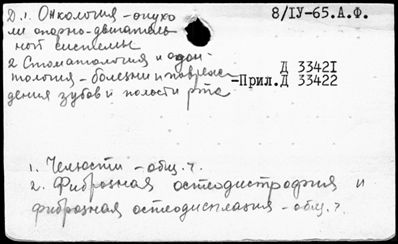 Д.1. Онкология - опухо
ли опорно-двигатель
ной системы
8/IУ-65.А.Ф.
2 Стоматология и одон
тология - болезни и повреж
дения зубов и полости рта
Д 33421
=Прил.Д 33422
1. Челюсти - общ. ч.
2. Фиброзная остеодистрофия и
фиброзная остеодисплазия - общ. ч.